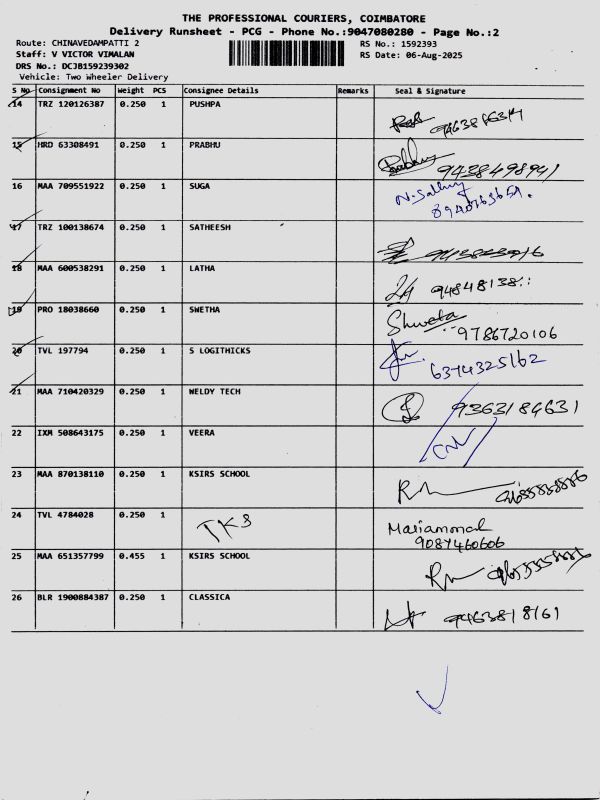 THE PROFESSIONAL COURIERS, COIMBATORE
Delivery Runsheet - PCG - Phone No.:9047080280 - Page No.:2
Route: CHINAVEDAMPATTI 2 RS No.: 1592393
Staff: V VICTOR VIMALAN RS Date: 06-Aug-2025
DRS No.: DCJB159239302
Vehicle: Two Wheeler Delivery
S No Consignment No Weight PCS Consignee Details Remarks Seal & Signature
14 TRZ 120126387 0.250 1 PUSHPA
15 HRD 63308491 0.250 1 PRABHU
Prabhu 9438498941
16 MAA 709551922 0.250 1 SUGA
17 TRZ 100138674 0.250 1 SATHEESH
18 MAA 600538291 0.250 1 LATHA
19 PRO 18038660 0.250 1 SWETHA
Shweta 9786720106
20 TVL 197794 0.250 1 S LOGITHICKS
6374325162
21 MAA 710420329 0.250 1 WELDY TECH
9363184631
22 IXM 508643175 0.250 1 VEERA
23 MAA 870138110 0.250 1 KSIRS SCHOOL
24 TVL 4784028 0.250 1 TKS
9087460606
25 MAA 651357799 0.455 1 KSIRS SCHOOL
26 BLR 1900884387 0.250 1 CLASSICA
9463818161